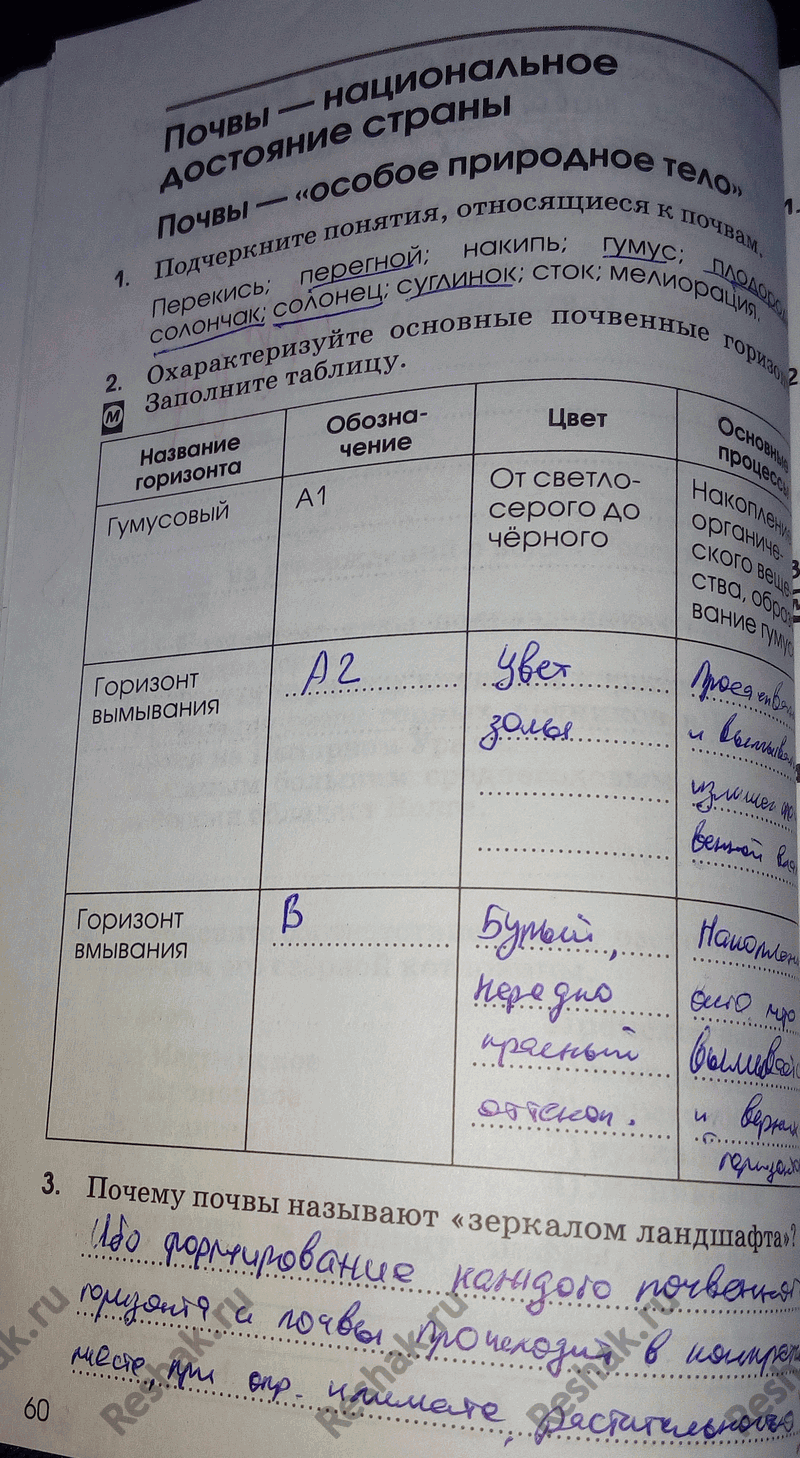 Почвы — национальное
достояние страны
Почвы — «особое природное тело»
1. Подчеркните понятия, относящиеся к почвам.
Перекись; перегной; накипь; гумус; плодород
солончак; солонец; суглинок; сток; мелиорация.
2. Охарактеризуйте основные почвенные горизон
М Заполните таблицу.
Название
горизонта
Обозна-
чение
Цвет
Основные
процессы
Гумусовый
А1
От светло-
серого до
чёрного
Накоплени
органиче-
ского веще
ства, образ
вание гумус
Горизонт
вымывания
А2
Цвет
золы
и вымыван
Горизонт
вмывания
В
Бурый,
нередко
красный
оттенок.
Накоплен
что
вымывает
и верхних
горизонт
3. Почему почвы называют «зеркалом ландшафта»?
Ибо формирование каждого почвенног
горизонта и почвы происходит в конкрет
месте, при опр. климате, растительности
60
Reshak.ru
Reshak.ru
Reshak.ru
Reshak.ru